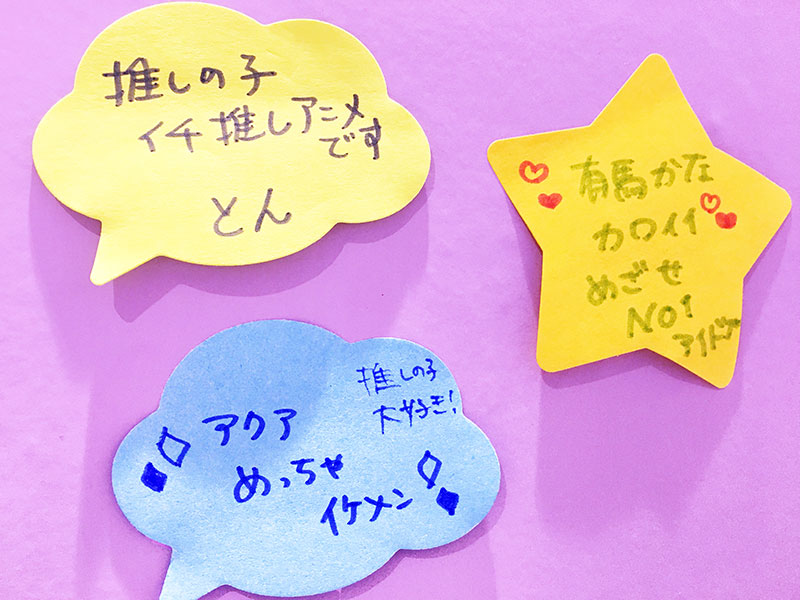 推しの子
イチ推しアニメ
です
とん
有馬かな
カワイイ
めざせ
NO1
アイドル
推しの子
大好き!
アクア
めっちゃ
イケメン